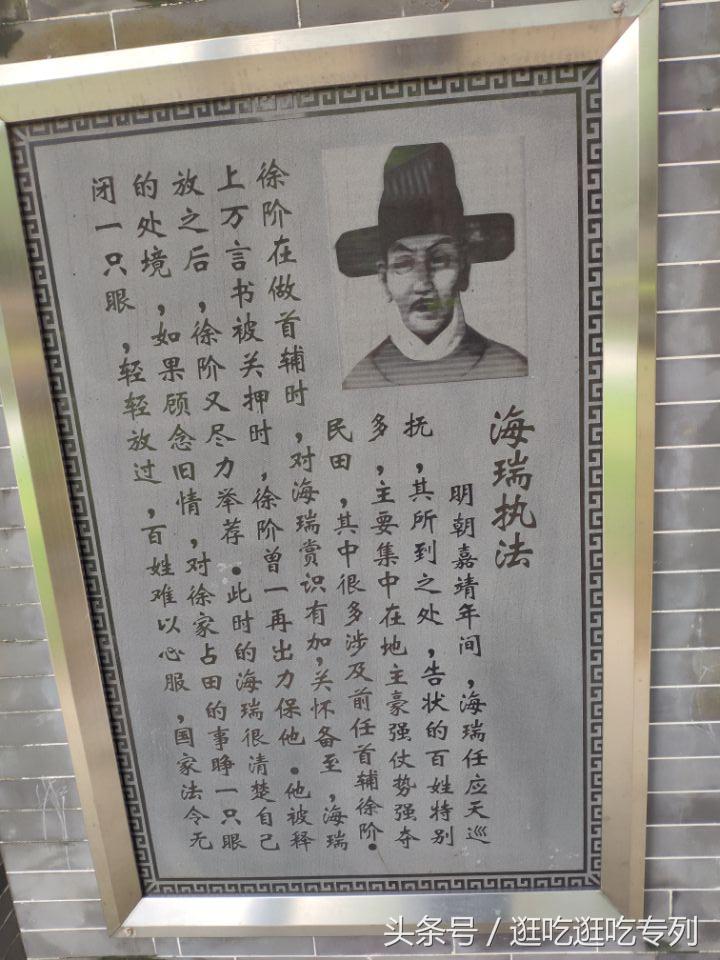 海瑞执法
明朝嘉靖年间，海瑞任应天巡
抚，其所到之处，告状的百姓特别
多，主要集中在地主豪强仗势强夺
民田，其中很多涉及前任首辅徐阶。
徐阶在做首辅时，对海瑞赏识有加，关怀备至，海瑞
上万言书被关押时，徐阶曾一再出力保他。他被释
放之后，徐阶又尽力举荐。此时的海瑞很清楚自己
的处境，如果顾念旧情，对徐家占田的事睁一只眼
闭一只眼，轻轻放过，百姓难以心服，国家法令无
头条号 / 逛吃逛吃专列